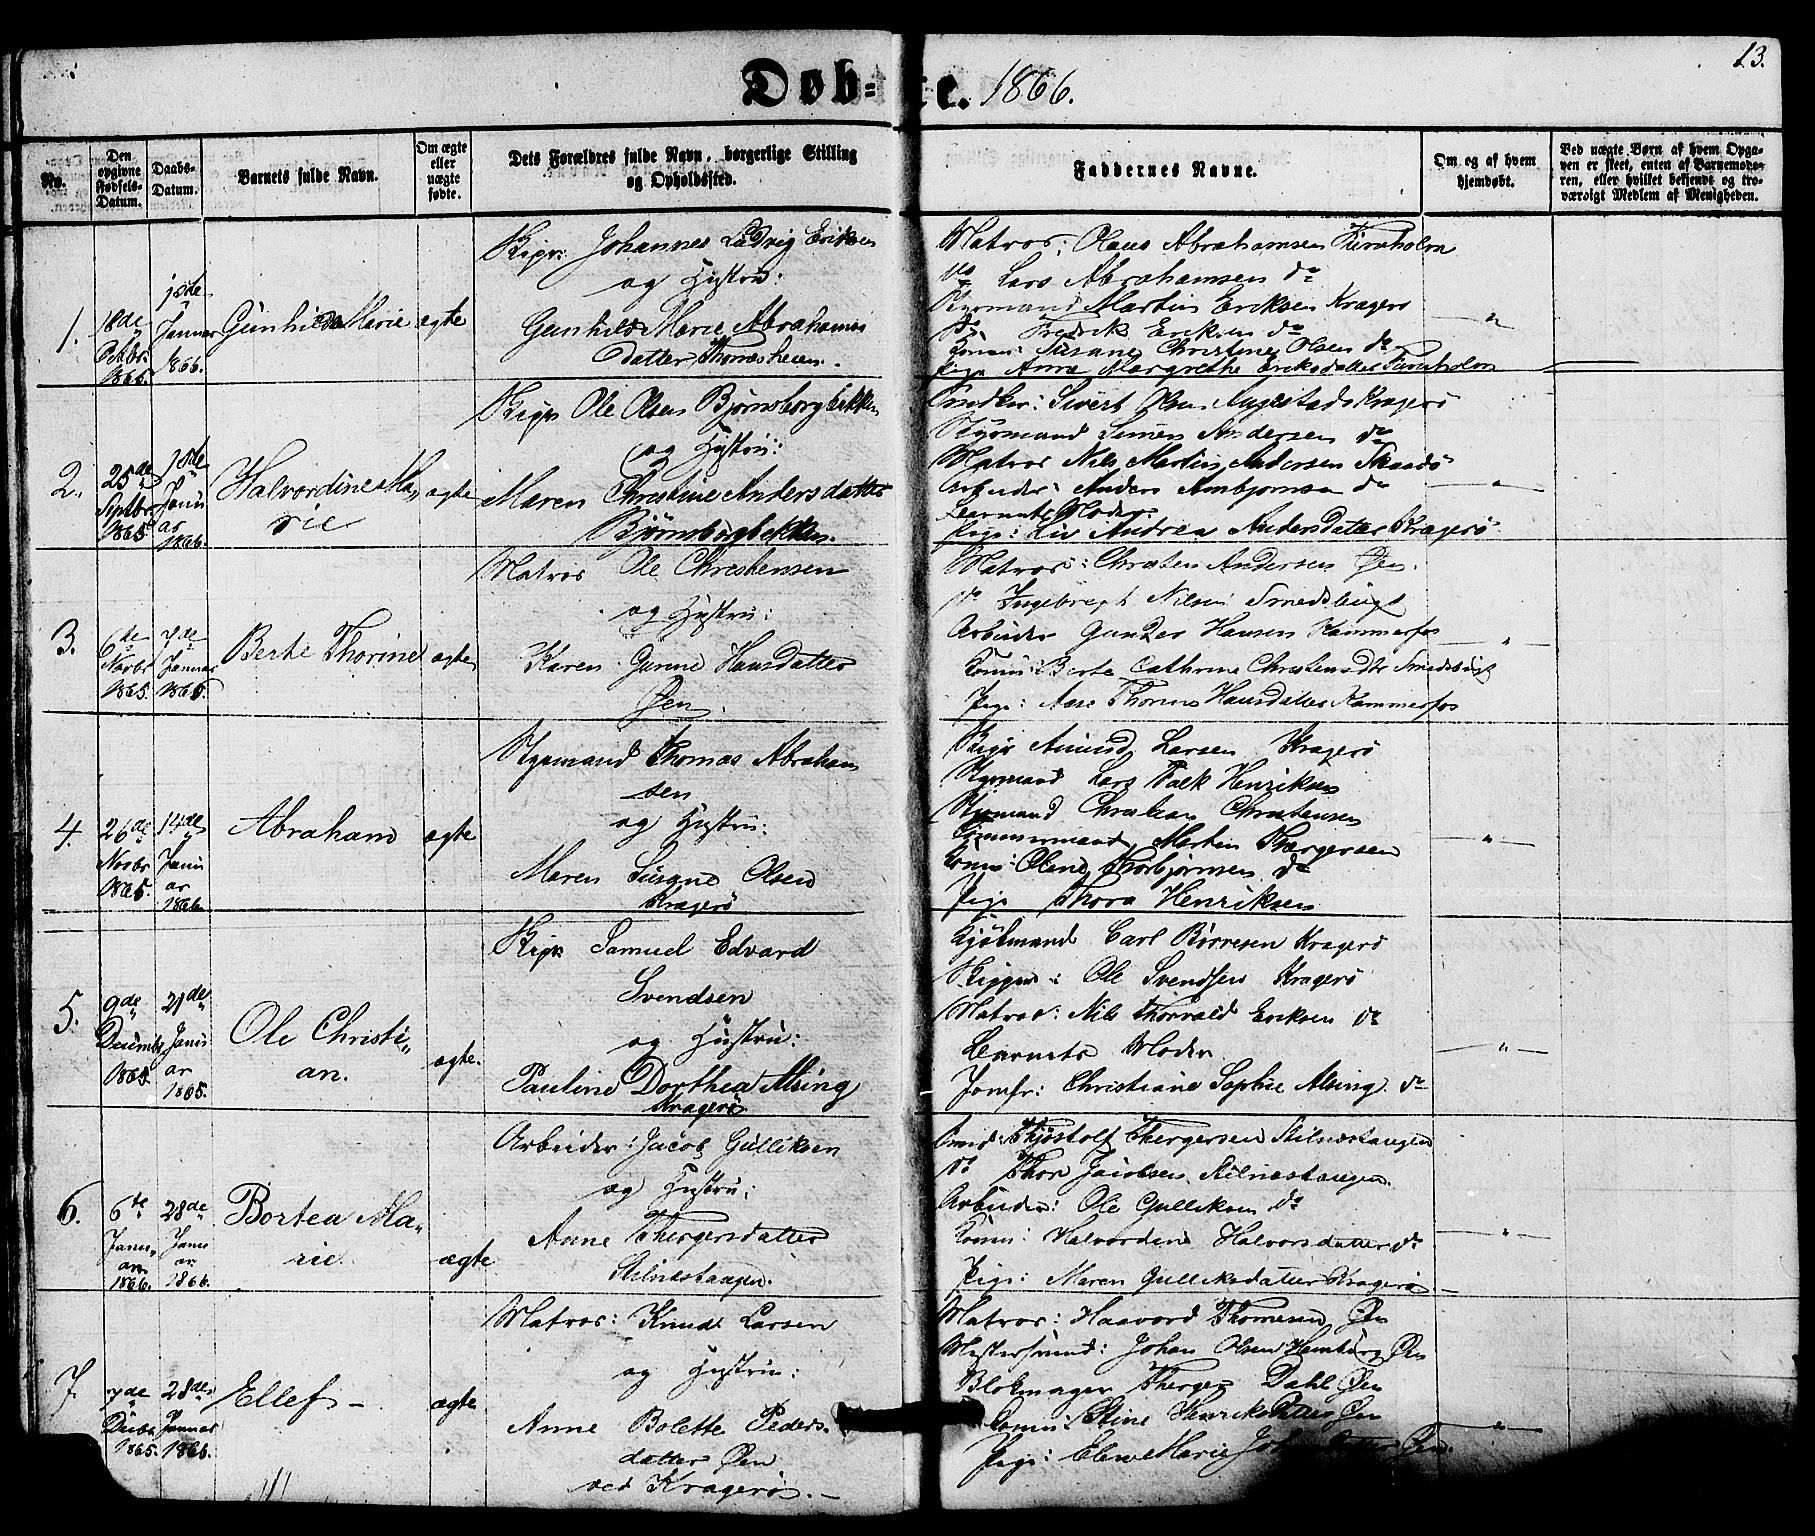 13.
Døb= te. 1866.
No.
Den opgivne Fødsels-Datum.
Daabs-Datum.
Barnets fulde Navn.
Om ægte eller uægte fødte.
Dets Forældres fulde Navn, borgerlige Stilling og Opholdssted.
Faddernes Navne.
Om og af hvem hjemdøbt.
Ved uægte Børn af hvem Opgaven er skeet, enten af Barnemoderen, eller hvilket bekjendt og troværdigt Medlem af Menigheden.
1.
18de Octbr. 1865.
Januar 1866.
Gunhild Marie
ægte
Skipr: Johannes Ludvig Eriksen
og Hustru:
Gunhild Marie Abrahams
datter Thomesheien.
Matros: Olaus Abrahamsen Furuholm
do Lars Abrahamsen do
Styrmand Martin Eriksen Kragerø
do Fredrik Eriksen do
Konen: Susane Christine Olsen do
Pige Anne Margrethe Eriksdatter Furuholm
2.
25de Septbr 1865.
18de Janu ar 1866.
Halvordine Ma,
rie
ægte
Skipr Ole Olsen Bjørnsborgbekken
og Hustru:
Maren Christine Andersdatter
Bjørnsborgbekken.
Snedker: Sivert Olsen Kragerø
Styrmand Simen Andersen do
Matros Nils Martin Andersen Skaadø
Arbeider: Anders Ambjørnsen do
Barnets Moder.
Pige: Liv Andrea Andersdatter Kragerø
3.
6te Novbr 1865.
7de Januar 1866.
Berte Thorine
ægte
Matros Ole Christensen
og Hustru:
Karen Gunne Hansdatter
Øen.
Matros: Christen Andersen Øen.
do Ingebregt Nilsen Smedsbugt
Arbeider Gunder Hansen Kammerfos
Konen: Berte Cathrine Christensdtr Smedsbugt
Pige: Aase Thorine Hansdatter Kammerfos
4.
26de Novbr 1865.
14de Janu ar 1866.
Abraham
ægte
Styrmand Thomas Abraham
sen
og Hustru:
Maren Susane Olsen
Kragerø
Skipr Amund Larsen Kragerø
Styrmand Lars Falk Henriksen
Styrmand Christian Christensen
Tømmermand Martin Thergersen
Konen: Olene Thorbjørnsen do
Pige Thora Henriksen
5.
9de Decembr. 1865.
21de Janu ar 1865.
Ole Christi,,
an.
ægte.
Skipr Samuel Edvard
Svendsen
og Hustru:
Pauline Dorthea Alsing
Kragerø
Kjøbmand Carl Børresen Kragerø
Skipper: Ole Svendsen Kragerø
Matros: Nils Thorvald Eriksen do
Barnets Moder.
Jomfr: Christiane Sophie Alsing do
6.
6te Janu, ar 1866.
28de Janu ar 1866.
Bortea Ma,,
rie
ægte
Arbeider: Jacob Gulliksen
og Hustru:
Anne Thergersdatter
Stilnæstangen.
Thjøstolf Thergersen Stilnæstangen
do Thor Jacobsen Stilnæstangen
Arbeider: Ole Gulliksen do
Konen: Halvordine Halvorsdatter do
Pige: Maren Gulliksdatter Kragerø.
7.
7de Decbr 1865.
28de Januar 1866.
Ellef —
ægte
Matros: Knud Larsen
og Hustru:
Anne Bolette Peders.
datter Øen
ved Kragerø.—
Matros: Haavord Thomesen Øen
Johan Olsen Hamborg Øen
Blokmager Therger Dahl Øen
Konen: Stine Henriksdatter Øen
Pige: Elene Marie datter Øen.